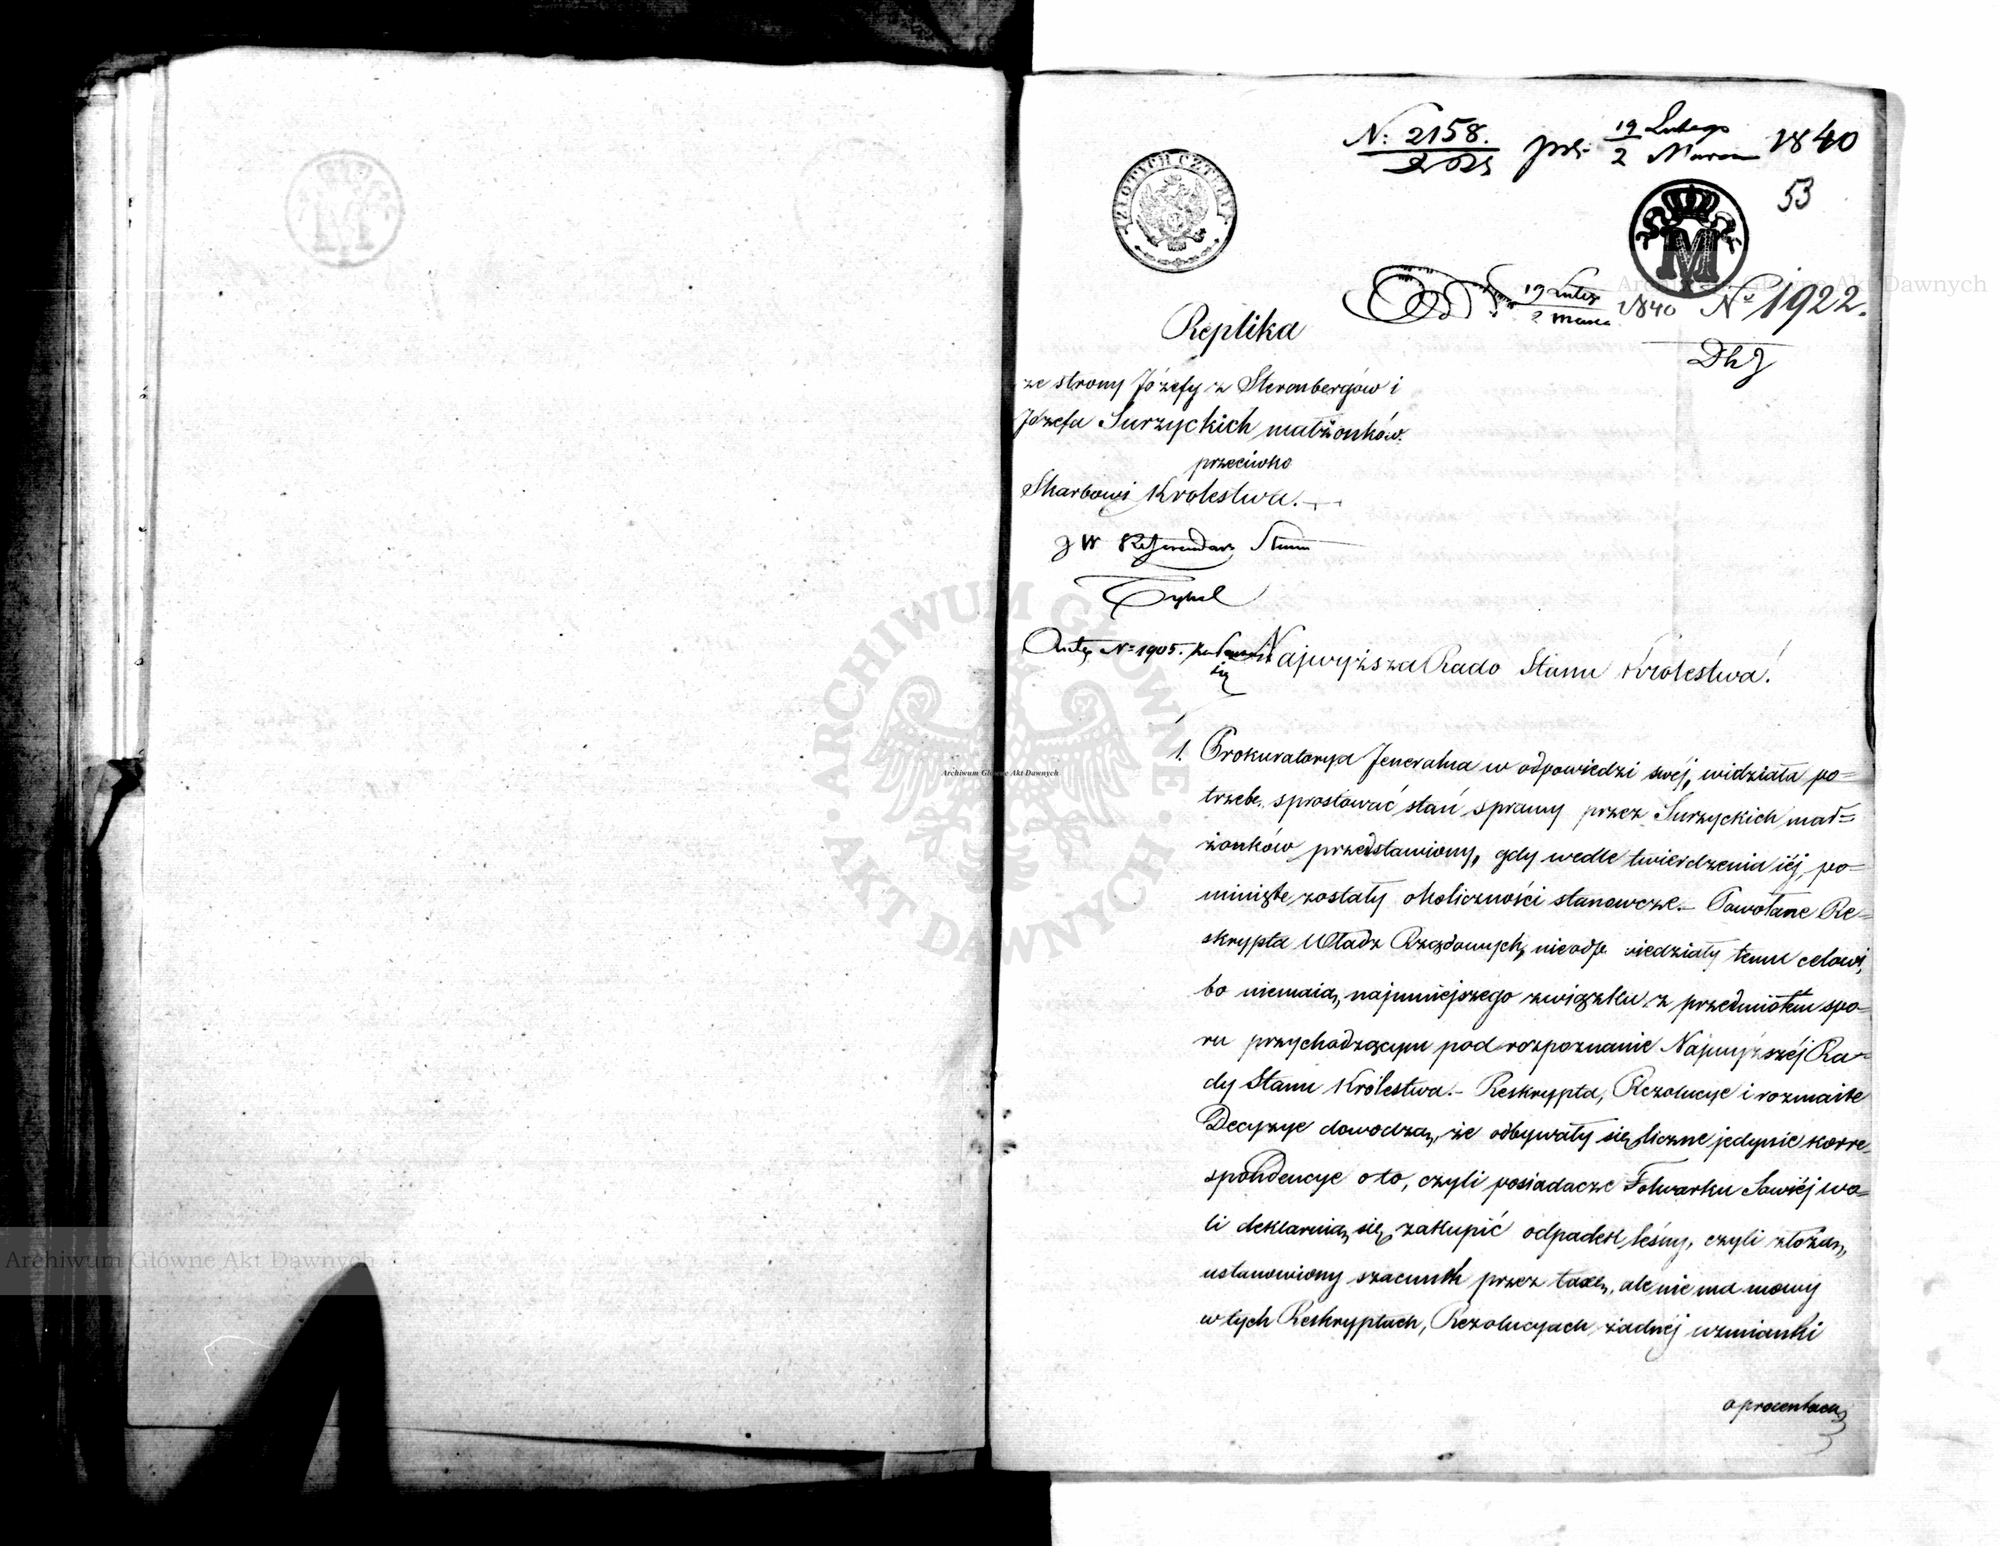 N: 2158. 19 Lutego 1840
2 Marca
53
ZŁOTYCH CZTERY
M
19 Luteg 1840 No 1922.
2 Marca
Replika
ze strony Józefy z Steronbergów i
Józefa Surzyckich małżonków.
przeciwko
Skarbowi Królestwa.
JW Referendarz Sturm
Antec No 1905.
się
Najwyższa Rado Stanu Królestwa!
1. Prokuratorya Jeneralna w odpowiedzi swéj, widziała po=
trzebę, sprostować stan sprawy przez Surzyckich mał=
żonków przedstawiony, gdy wedle twierdzenia iéj, po=
minięte zostały okoliczności stanowcze.- Powołane Re=
skrypta Władz Rządowych, nieodpowiedziały temu celowi,
bo niemaią, najmniejszego związku, z przedmiotem spo=
ru przychodzącym pod rozpoznanie Najwyższéj Ra=
dy Stanu Królestwa.- Reskrypta, Rezolucye i rozmaite
Decyzye dowodzą, że odbywały się liczne jedynie korre=
spondencye o to, czyli posiadacze Folwarku Sowiéj wo=
li deklaruią się, zakupić odpadek leśny, czyli złożą,
ustanowiony szacunek przez taxę, ale nie ma mowy
w tych Reskryptach, Rezolucyach, żadnéj wzmianki
o procentach
Archiwum Główne Akt Dawnych
ARCHIWUM GŁÓWNE AKT DAWNYCH
Archiwum Główne Akt Dawnych
Archiwum Główne Akt Dawnych